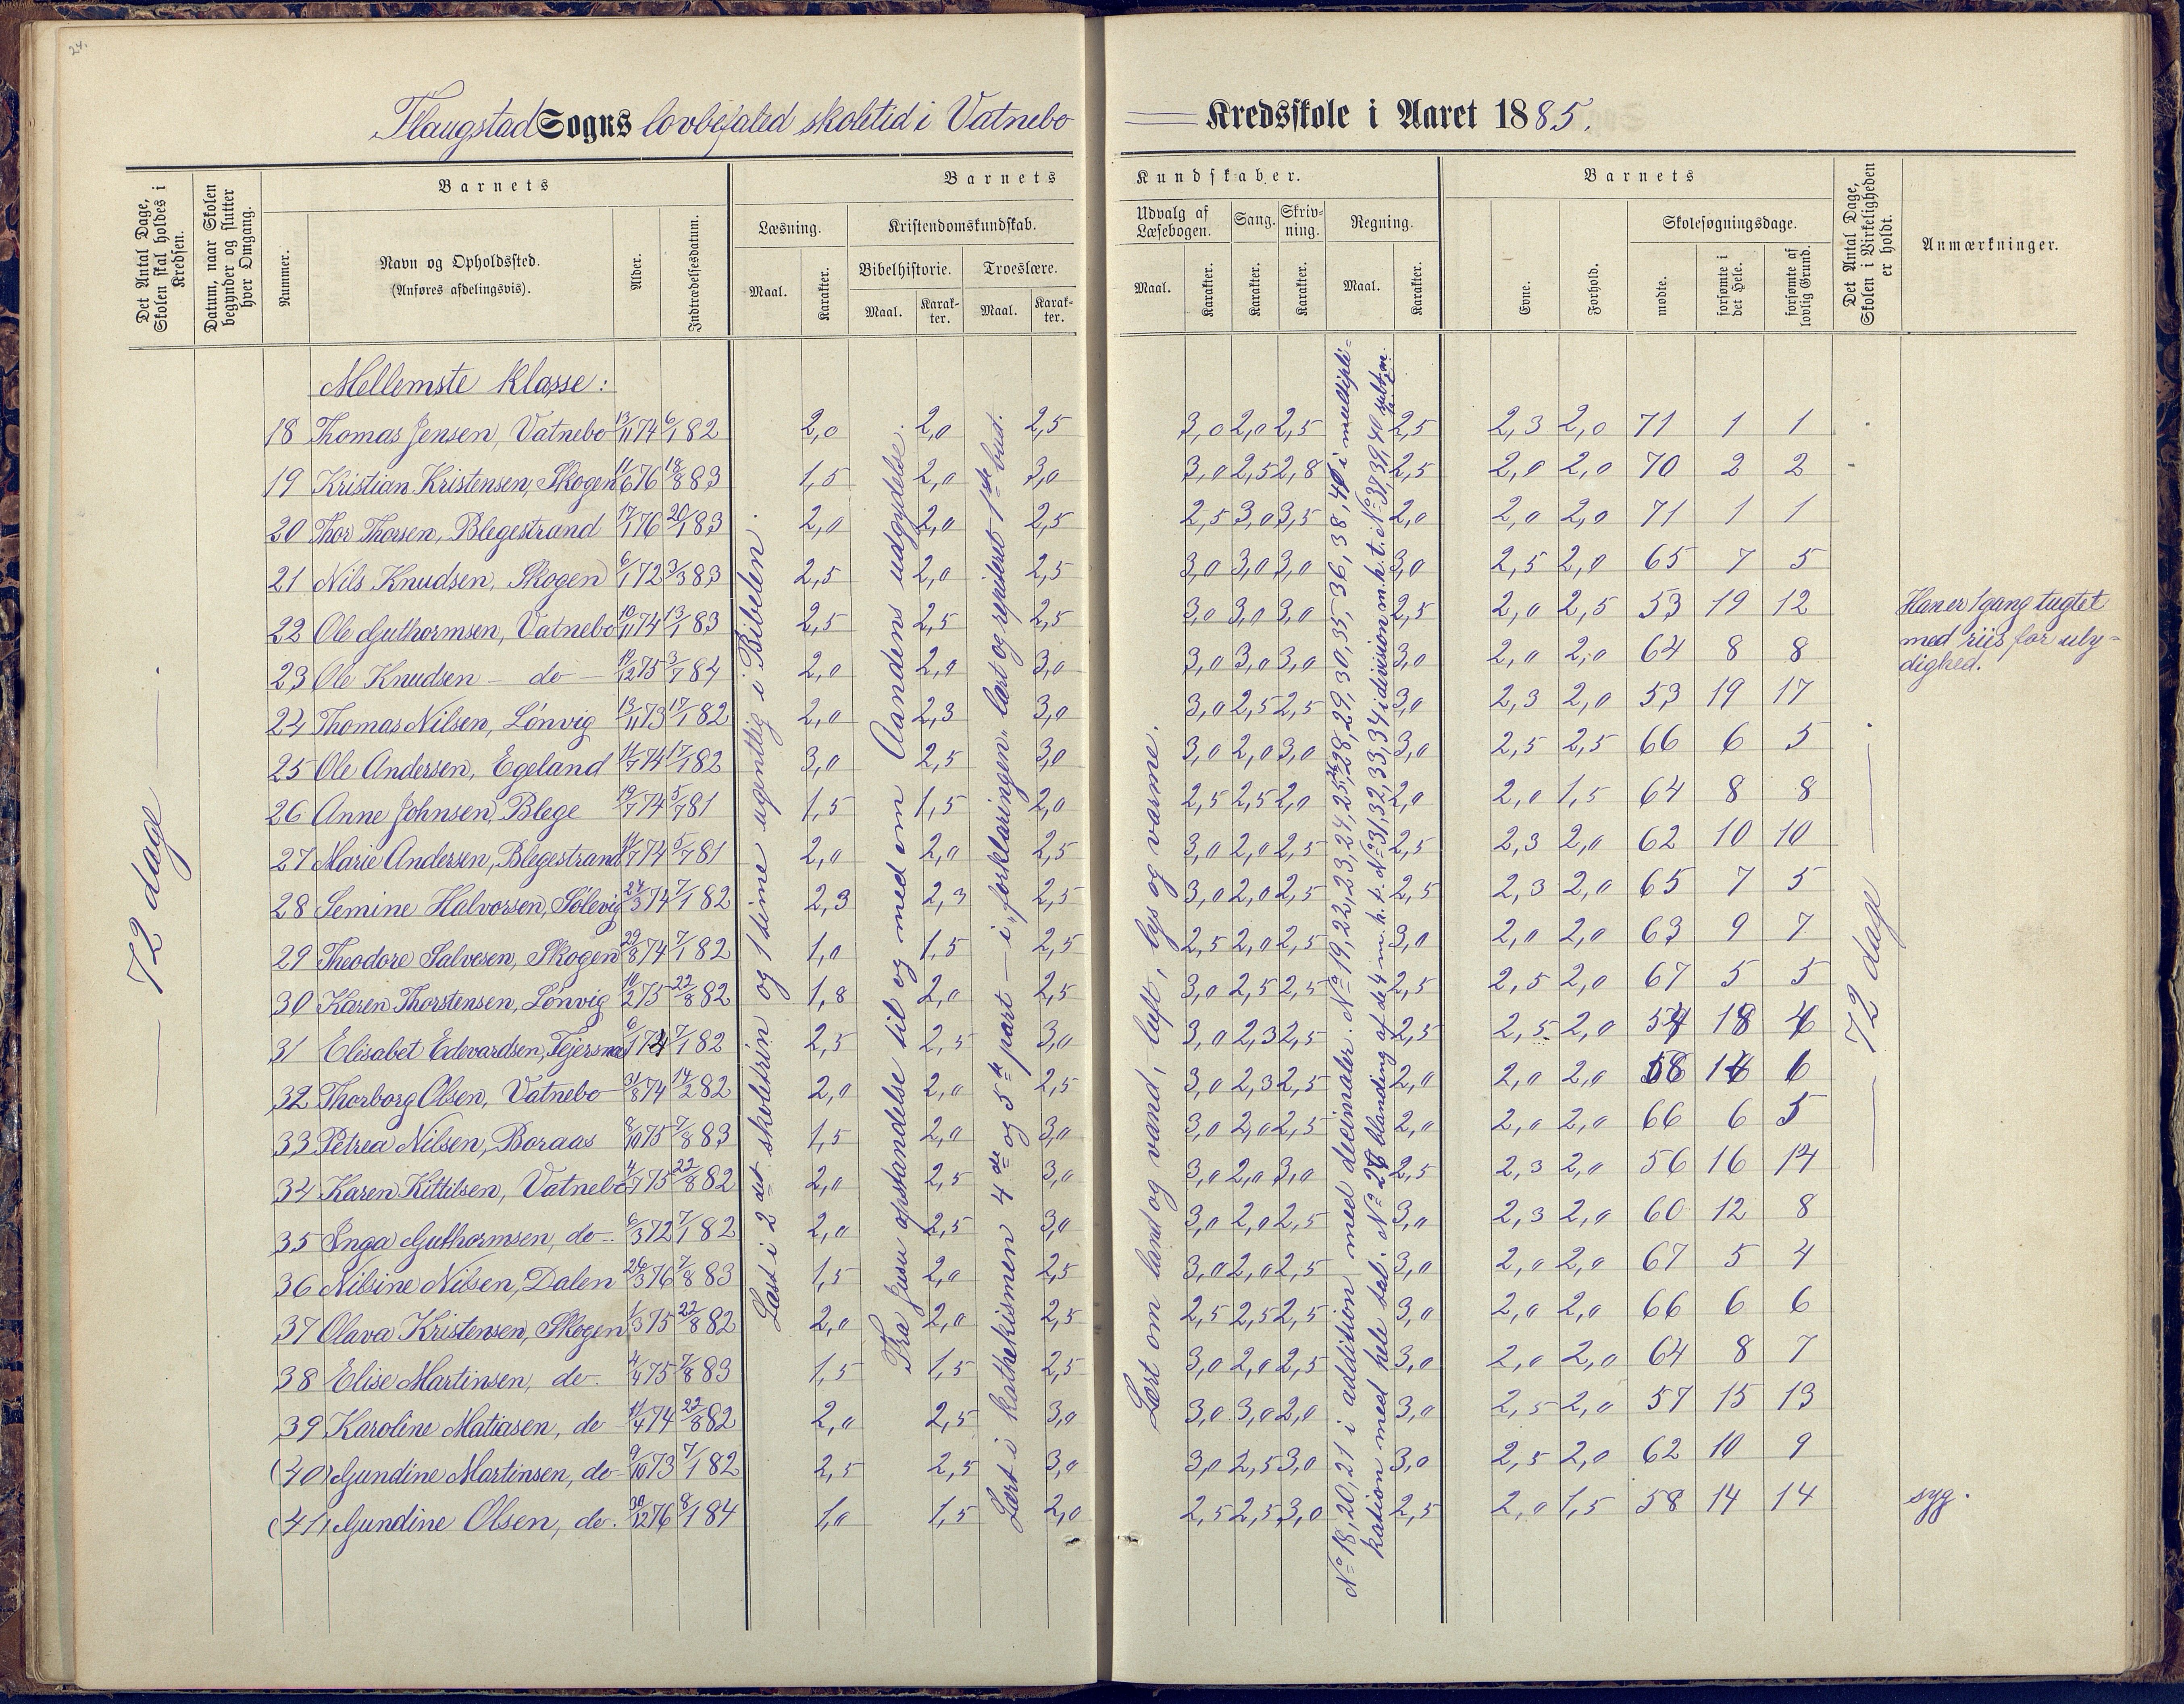 24.
Flaugstad Sogns lovbefaled skoletid i Vatnebo Kredsskole i Aaret 1885.
Det Antal Dage, Skolen skal holdes i Kredsen.
Datum, naar Skolen begynder og slutter hver Omgang.
Barnets
Nummer.
Navn og Opholdssted.
(Anføres afdelingsvis).
Alder.
Indtrædelsesdatum.
Barnets Kundskaber.
Læsning.
Maal.
Karakter.
Kristendomskundskab.
Bibelhistorie.
Maal.
Karakter.
Troeslære.
Maal.
Karakter.
Udvalg af Læsebogen.
Maal.
Karakter.
Sang.
Karakter.
Skrivning.
Karakter.
Regning.
Maal.
Karakter.
Barnets
Evne.
Forhold.
Skolesøgningsdage.
mødte.
forsømte i det Hele.
forsømte af lovlig Grund.
Det Antal Dage, Skolen i Virkeligheden er holdt.
Anmærkninger.
Mellemste klasse:
18 Thomas Jensen, Vatnebo 13/11 74 6/1 82 2,0 2,0 2,5 3,0 2,0 2,5 2,5 2,3 2,0 71 1 1
19 Kristian Kristensen, Skogen 11/6 76 18/8 83 1,5 2,0 3,0 3,0 2,5 2,8 2,5 2,0 2,0 70 2 2
20 Thor Thorsen, Blegestrand 17/1 76 20/1 83 2,0 2,0 2,5 2,5 3,0 3,5 2,0 2,0 2,0 71 1 1
21 Nils Knudsen, Skogen 6/1 72 3/3 83 2,5 2,0 2,5 3,0 3,0 3,0 3,0 2,5 2,0 65 7 5
22 Ole Guthormsen, Vatnebo 10/11 74 13/1 83 2,5 2,5 2,5 3,0 3,0 3,0 2,5 2,0 2,5 53 19 12 Han er 1 gang tugtet med riis for ulydighed.
23 Ole Knudsen - do - 12/12 75 3/7 84 2,0 2,0 3,0 3,0 3,0 3,0 3,0 2,0 2,0 64 8 8
24 Thomas Nilsen, Lönvig 13/11 73 17/1 82 2,0 2,3 3,0 3,0 2,5 2,5 3,0 2,3 2,0 53 19 17
25 Ole Andersen, Egeland 11/7 74 17/1 82 3,0 2,5 3,0 3,0 2,0 3,0 3,0 2,5 2,5 66 6 5
26 Anne Johnsen, Blege 19/7 74 5/7 81 1,5 1,5 2,0 2,5 2,5 2,0 2,0 2,0 1,5 64 8 8
27 Marie Andersen, Blegestrand 74 5/7 81 2,0 2,0 2,5 3,0 2,0 2,5 2,5 2,3 2,0 62 10 10
28 Semine Halvorsen, Sölevig 24/3 74 7/1 82 2,3 2,3 2,5 3,0 2,0 2,5 2,5 2,3 2,0 65 7 5
29 Theodore Salvesen, Skogen 29/8 74 7/1 82 1,0 1,5 2,5 2,5 2,0 2,5 3,0 2,0 2,0 63 9 7
30 Karen Thorstensen, Lönvig 10/2 75 22/8 82 1,8 2,0 2,5 3,0 2,5 2,5 2,5 2,5 2,0 67 5 5
31 Elisabet Edevardsen, 6/1 7/1 82 2,5 2,5 3,0 3,0 2,3 2,5 2,5 2,5 2,0 54 18 4
32 Thorborg Olsen, Vatnebo 31/8 74 14/2 82 2,0 2,0 2,5 3,0 2,3 2,5 2,0 2,0 2,0 58 14 6
33 Petrea Nilsen, Boraas 8/10 75 7/8 83 1,5 2,0 3,0 3,0 2,0 2,5 2,0 2,0 2,0 66 6 5
34 Karen Kittilsen, Vatnebo 4/7 75 22/8 82 2,0 2,5 3,0 3,0 2,0 3,0 2,5 2,3 2,0 56 16 14
35 Inga Guthormsen, do 6/3 72 7/1 82 2,0 2,5 3,0 3,0 2,0 2,5 3,0 2,3 2,0 60 12 8
36 Nilsine Nilsen, Dalen 26/3 76 7/8 83 1,5 2,0 2,5 3,0 2,0 2,5 3,0 2,0 2,0 67 5 4
37 Olava Kristensen, Skogen 1/3 75 22/8 82 2,0 2,0 2,5 2,5 2,5 2,5 3,0 2,0 2,0 66 6 6
38 Elise Martinsen, do. 4/4 75 7/8 83 1,5 1,5 2,5 3,0 2,0 2,5 3,0 2,0 2,0 64 8 7
39 Karoline Matiasen, do 11/4 74 22/8 82 2,0 2,5 3,0 3,0 3,0 2,0 3,0 2,5 2,0 57 15 13
(40) Gundine Martinsen, do 9/10 73 7/1 82 2,5 2,5 3,0 3,0 2,5 3,0 3,0 2,5 2,0 62 10 9
(41) Gundine Olsen, do. 30/12 76 8/1 84 1,0 1,5 2,0 2,5 2,5 3,0 2,5 2,0 1,5 58 14 14 syg.
— 72 dage —.
Læst i 2det skoletrin og 1 time ugentlig i Bibelen.
Fra Jesu opstandelse til og med om Aandens udgydelse.
Lært i kathekismen 4de og 5te part — i „forklaringen" lært og repiteret 1ste bud.
Lært om land og vand, luft, lys og varme.
No 18, 20, 21 i addition med decimaler. No 19, 22, 23, 24, 25, 26, 28, 29, 30, 35, 36, 38, 41 i multiplikation med hele tal. No 27 blanding af de 4 m. h. t. No 31, 32, 33, 34 i division m. h. t. No 37, 39, 40
— 72 dage —.